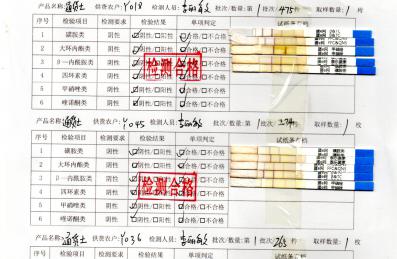 产品名称: 供货农户: Y018 检测人员: 批次/数量:第 1 批次/ 475 枚 取样数量: 1 枚
序号 检验项目 检测要求 检验结果 单项判定 试纸条存档
1 磺胺类 阴性 ☑阴性/□阳性 ☑合格/□不合格
2 大环内酯类 阴性 ☑阴性/□阳性 ☑合格/□不合格
3 β一内酰胺类 阴性 ☑阴性/□阳性 ☑合格/□不合格
4 四环素类 阴性 ☑阴性/□阳性 ☑合格/□不合格
5 甲硝唑类 阴性 ☑阴性/□阳性 ☑合格/□不合格
6 喹诺酮类 阴性 ☑阴性/□阳性 ☑合格/□不合格
检测合格
产品名称: 供货农户: Y045 检测人员: 批次/数量:第 1 批次/ 枚 取样数量: 1 枚
序号 检验项目 检测要求 检验结果 单项判定 试纸条存档
1 磺胺类 阴性 ☑阴性/□阳性 ☑合格/□不合格
2 大环内酯类 阴性 ☑阴性/□阳性 ☑合格/□不合格
3 β一内酰胺类 阴性 ☑阴性/□阳性 ☑合格/□不合格
4 四环素类 阴性 ☑阴性/□阳性 ☑合格/□不合格
5 甲硝唑类 阴性 ☑阴性/□阳性 ☑合格/□不合格
6 喹诺酮类 阴性 ☑阴性/□阳性 ☑合格/□不合格
检测合格
产品名称: 供货农户: Y036 检测人员: 批次/数量:第 1 批次/ 265 枚 取样数量: 1 枚